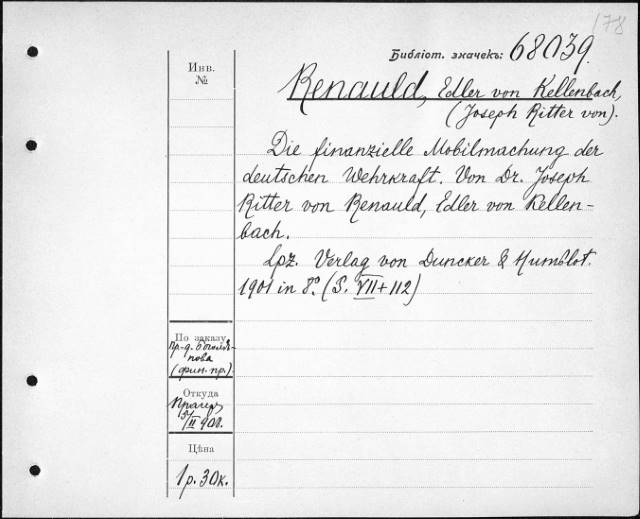 178
Библіот. значекъ: 68039.
Инв.
№
Renauld, Edler von Kellenbach,
(Joseph Ritter von).
Die finanzielle Mobilmachung der
deutschen Wehrkraft. Von Dr. Joseph
Ritter von Renauld, Edler von Kellen-
bach.
Lpz. Verlag von Duncker & Humblot.
1901 in 8º. (S. VII + 112)
По заказу
пр-д. Боголѣ-
пова
(фин. пр.)
Откуда
II 901.
Цѣна
1 р. 30 к.